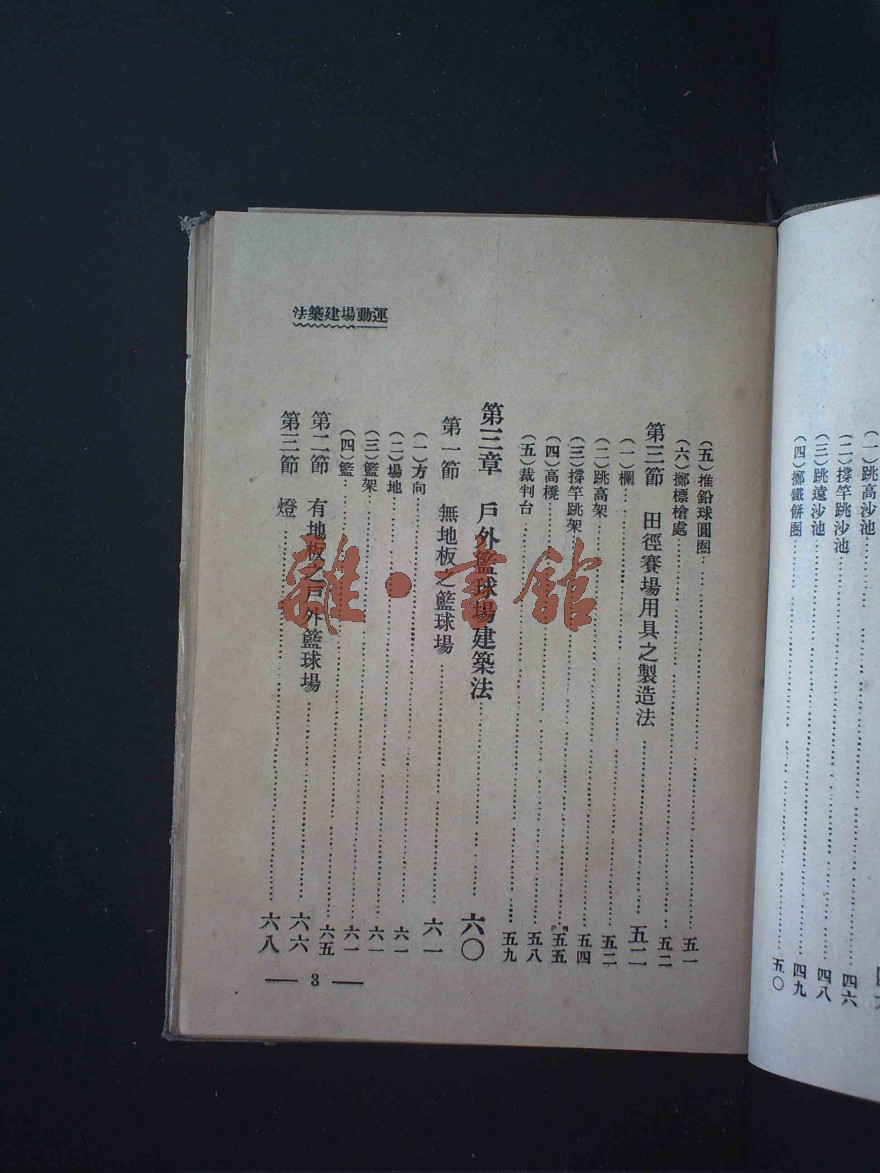 (一)跳高沙池……四六
(二)撐竿跳沙池……四八
(三)跳遠沙池……四九
(四)擲鐵餅圈……五〇
運動場建築法
(五)推鉛球圓圈……五一
(六)擲標槍處……五二
第三節 田徑賽場用具之製造法……五二
(一)欄……五二
(二)跳高架……五四
(三)撐竿跳架……五五
(四)高櫈……五八
(五)裁判台……五九
第三章 戶外籃球場建築法……六〇
第一節 無地板之籃球場……六一
(一)方向……六一
(二)場地……六一
(三)籃架……六一
(四)籃……六五
第二節 有地板之戶外籃球場……六六
第三節 燈……六八
— 3 —
雜·書館